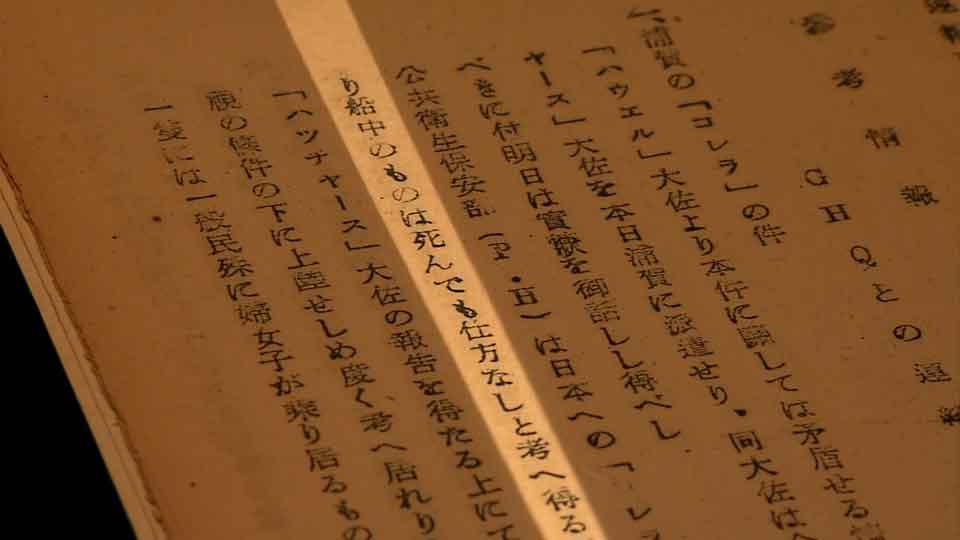 参考情報
GHQとの連絡
一、浦賀の「コレラ」の件
「ハウエル」大佐より本件に關しては矛盾せる
ヤース」大佐を本日浦賀に派遣せり。同大佐は
べきに付明日は實狀を御話しし得べし
公共衛生保安部(P・H)は日本への「コレ
り船中のものは死んでも仕方なしと考へ得る
「ハツチヤース」大佐の報告を得たる上にて
視の條件の下に上陸せしめ度く考へ居れり
一變には一般民殊に婦女子が乘り居るもの